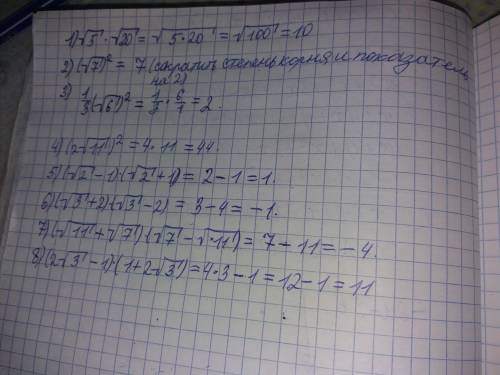 1) √5 · √20 = √5·20 = √100 = 10
2) (√7)² = 7 (сократить степень корня и показатель
на 2)
3) 1/3 (√6)² = 1/3 · 6/1 = 2.
4) (2√11)² = 4·11 = 44.
5) (√2 - 1)·(√2 + 1) = 2 - 1 = 1.
6) (√3 + 2)·(√3 - 2) = 3 - 4 = -1.
7) (√11 + √7)·(√7 - √11) = 7 - 11 = -4.
8) (2√3 - 1)·(1 + 2√3) = 4·3 - 1 = 12 - 1 = 11